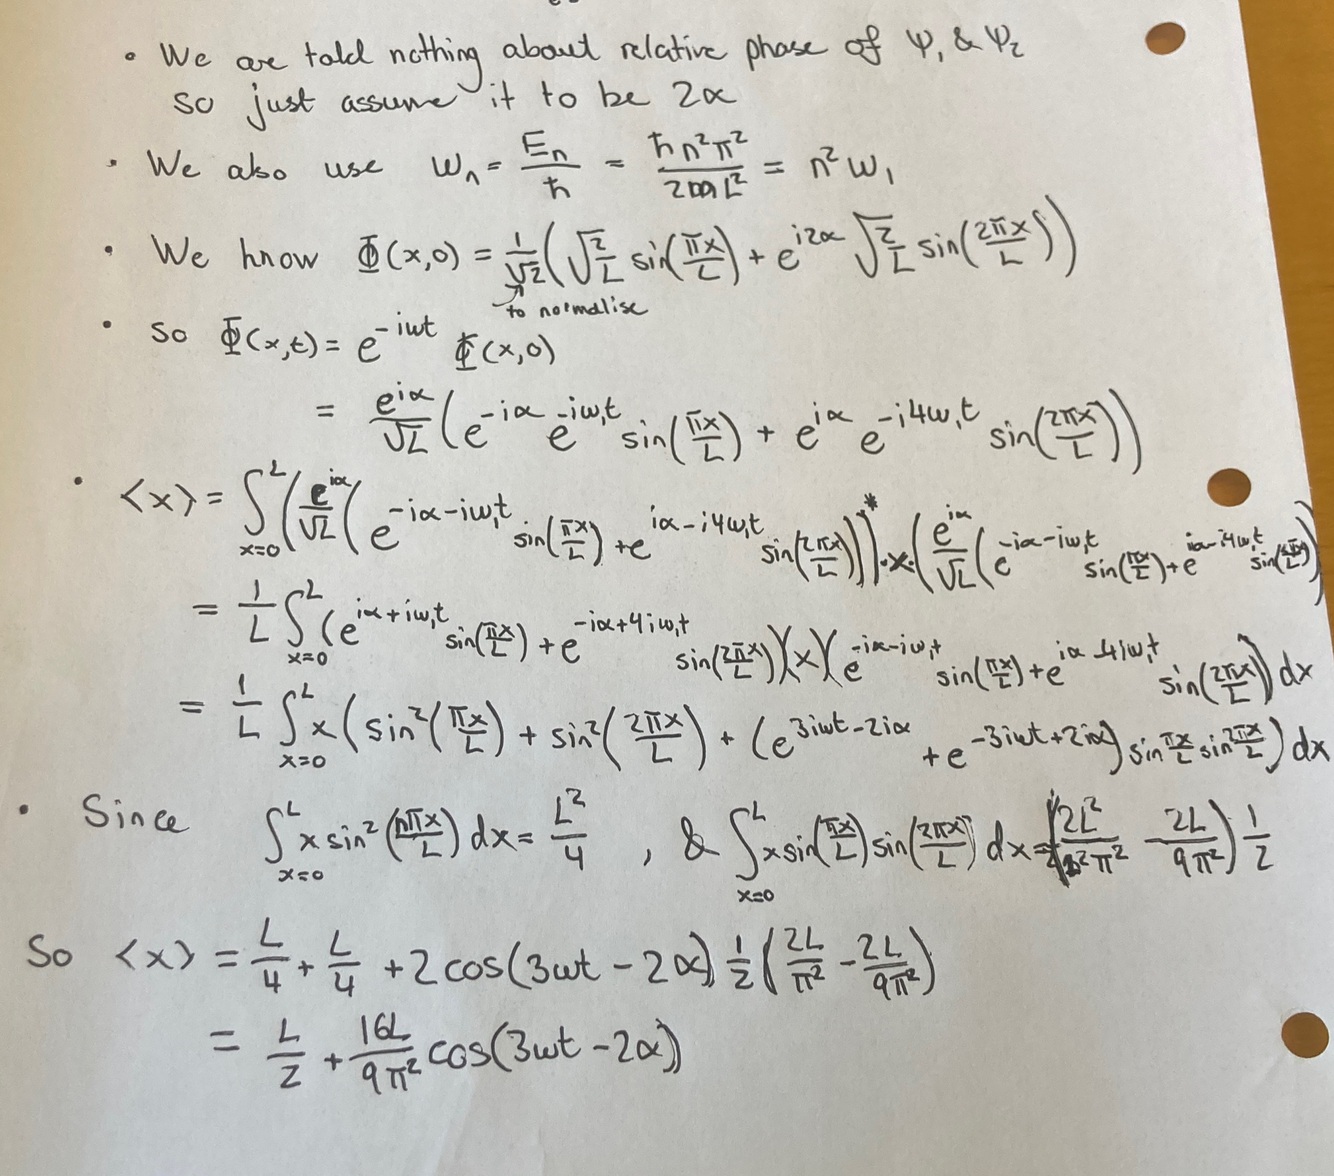 • We are told nothing about relative phase of Ψ₁ & Ψ₂
so just assume it to be 2α
• We also use ωₙ = Eₙ/ħ = ħn²π²/2mL² = n²ω₁
• We know Φ(x,0) = 1/√2 (√(2/L) sin(πx/L) + e^{i2α} √(2/L) sin(2πx/L))
to normalise
• so Φ(x,t) = e^{-iωt} Φ(x,0)
= e^{iα}/√L (e^{-iα} e^{-iω₁t} sin(πx/L) + e^{iα} e^{-i4ω₁t} sin(2πx/L))
• <x> = ∫_{x=0}^{L} (e^{iα}/√L (e^{-iα-iω₁t} sin(πx/L) + e^{iα-i4ω₁t} sin(2πx/L)))* · x · (e^{iα}/√L (e^{-iα-iω₁t} sin(πx/L) + e^{iα-i4ω₁t} sin(2πx/L)))
= 1/L ∫_{x=0}^{L} (e^{iα+iω₁t} sin(πx/L) + e^{-iα+4iω₁t} sin(2πx/L))(x)(e^{-iα-iω₁t} sin(πx/L) + e^{iα-4iω₁t} sin(2πx/L)) dx
= 1/L ∫_{x=0}^{L} x (sin²(πx/L) + sin²(2πx/L) + (e^{3iωt-2iα} + e^{-3iωt+2iα}) sin πx/L sin 2πx/L) dx
• Since ∫_{x=0}^{L} x sin²(nπx/L) dx = L²/4 , & ∫_{x=0}^{L} x sin(πx/L) sin(2πx/L) dx = (2L²/π² - 2L/9π²) 1/2
So <x> = L/4 + L/4 + 2 cos(3ωt - 2α) 1/2 (2L/π² - 2L/9π²)
= L/2 + 16L/9π² cos(3ωt - 2α)